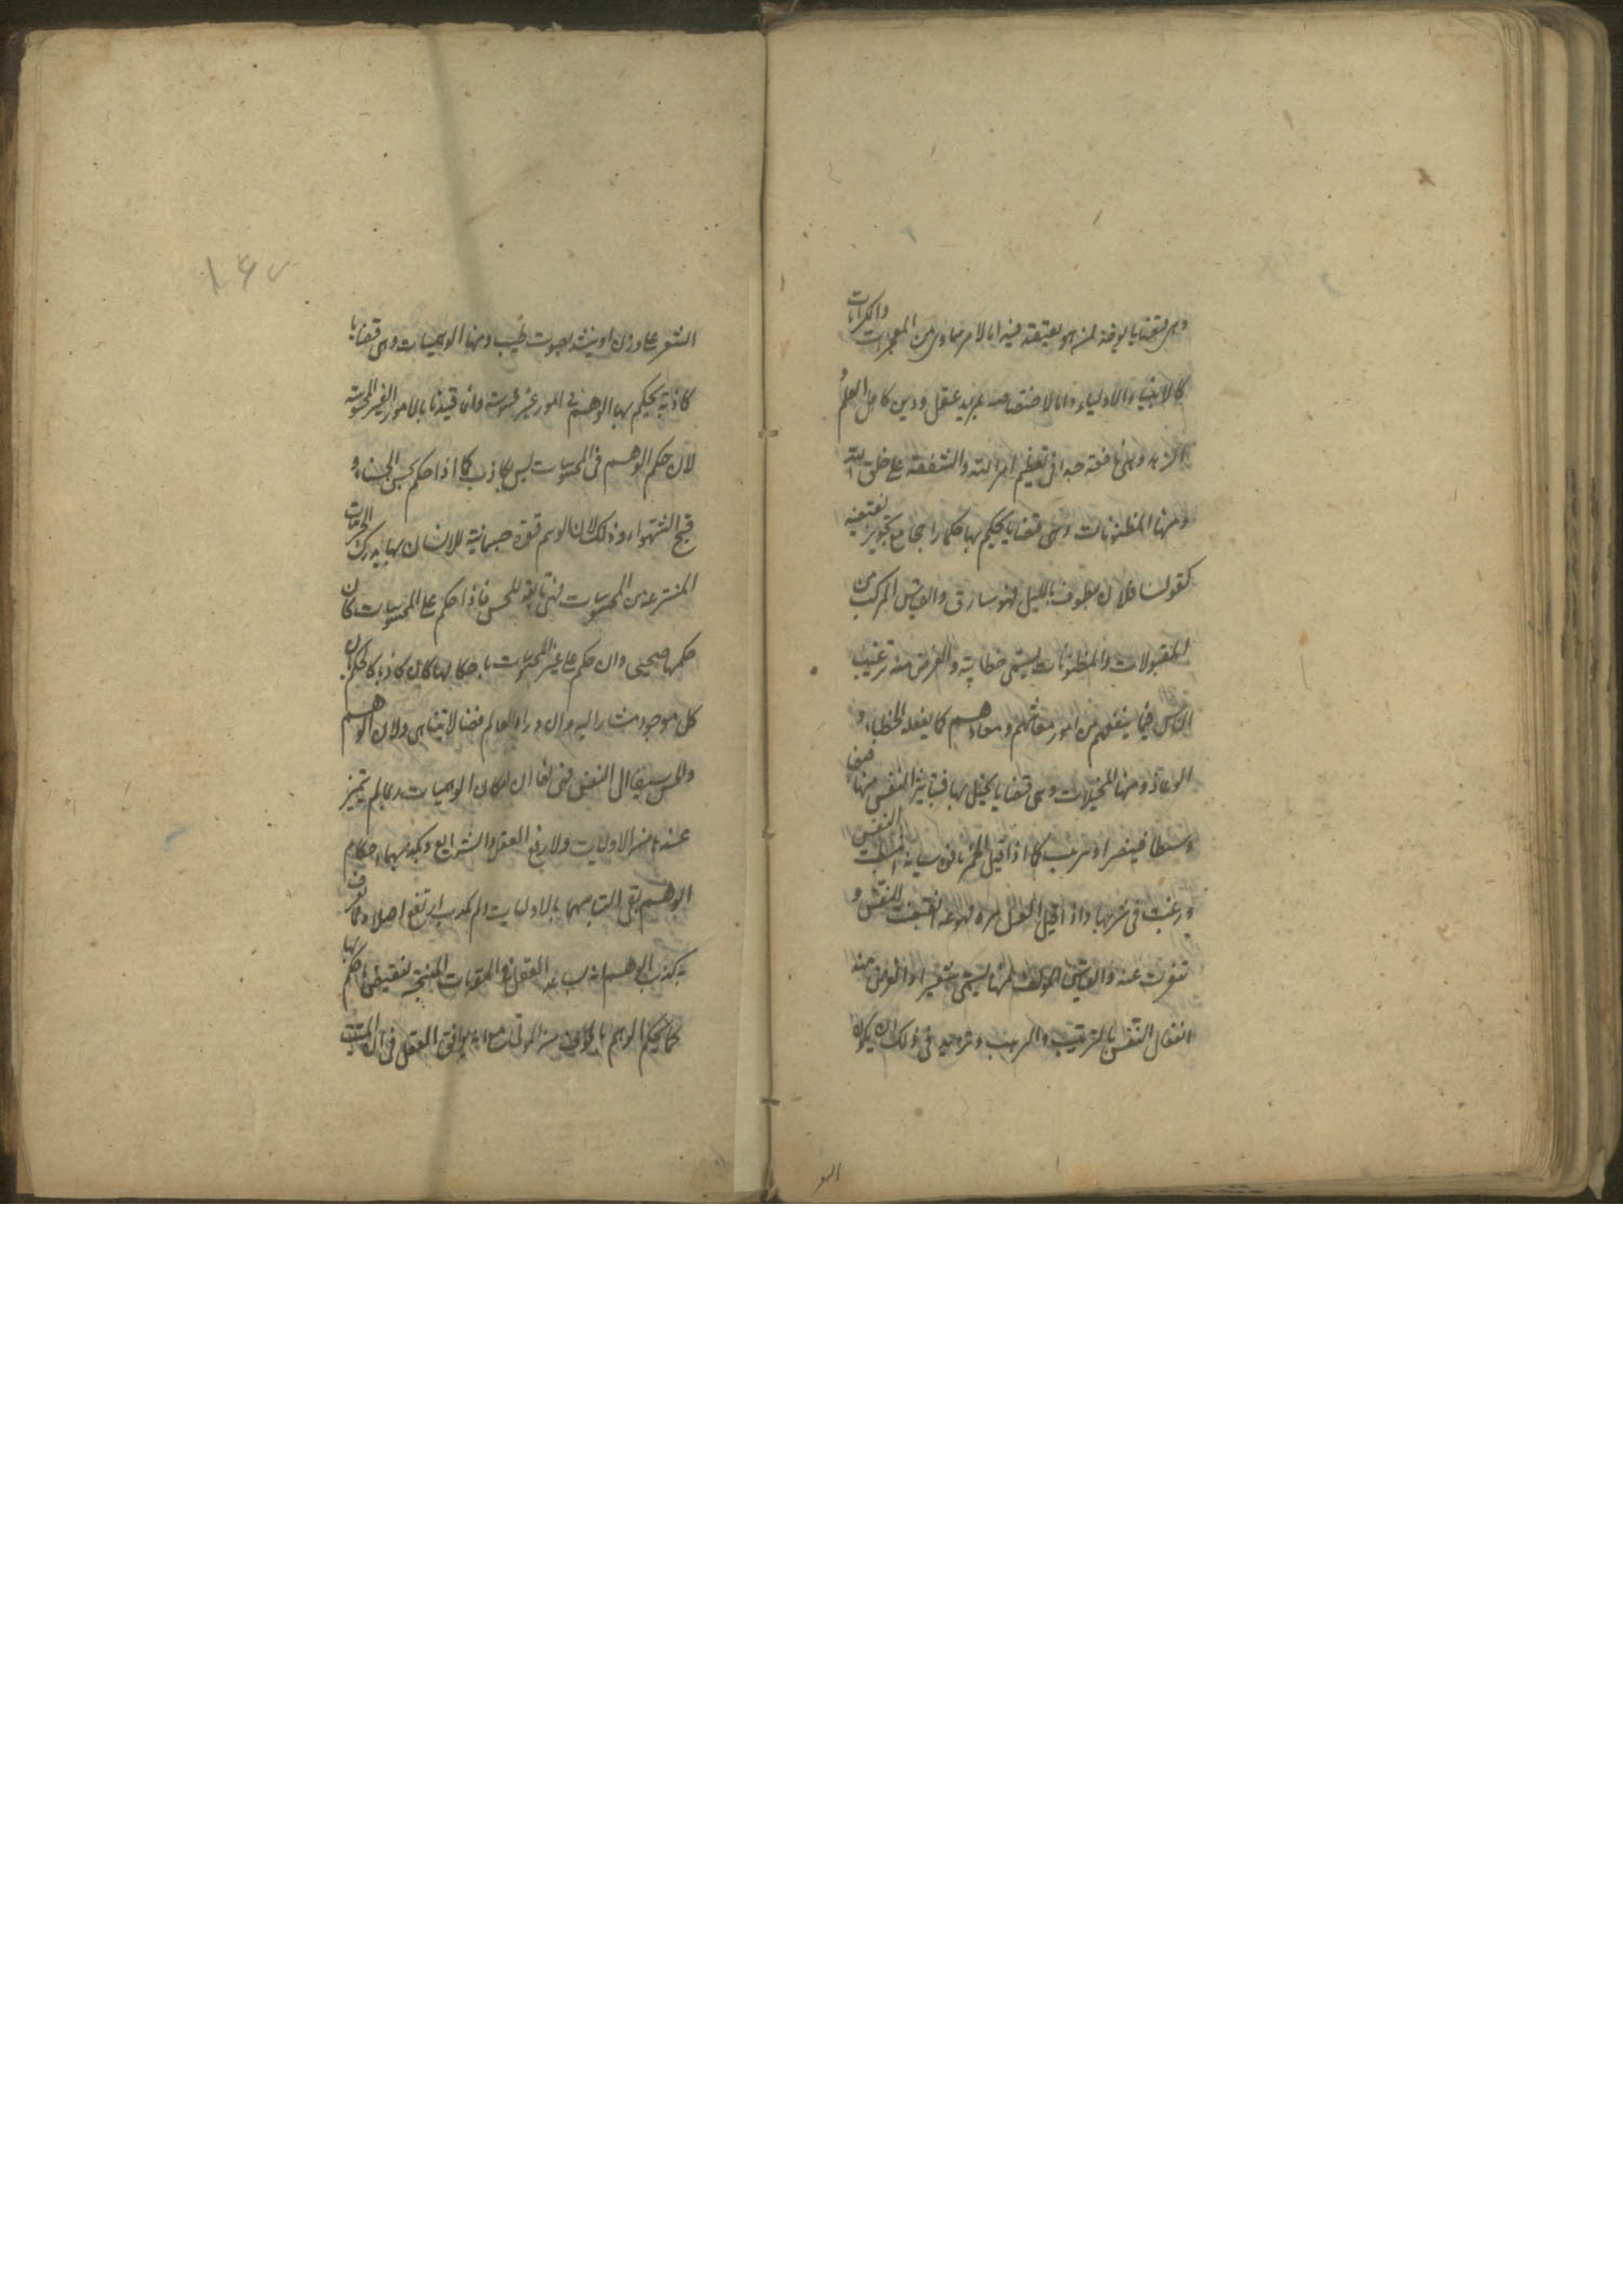 وهى قضايا يوخذ ممن هو يعتقد فيه اما لامر سماوى من المعجزات والكرامات
كالانبياء والاولياء واما لاختصاصه بمزيد عقل ودين كاهل العلم و
الزهد وهى نافعة جدا فى تعظيم امر الله والشفقة على خلق الله
ومنها المظنونات وهى قضايا يحكم بها حكما راجحا مع تجويز نقيضه
كقولنا فلان يطوف بالليل فهو سارق والقياس المركب من
المقبولات والمظنونات يسمى خطابية والغرض منه ترغيب
الناس فيما ينفعهم من امور معاشهم ومعادهم كما يفعله الخطباء و
الوعاظ ومنها المخيلات وهى قضايا يخيل بها فيتاثر النفس منها قبضا
وبسطا فينفر او يرغب كما اذا قيل الخمر ياقوتة سيالة انبسطت النفس
ورغبت فى شربها واذا قيل العسل مرة مهوعة انقبضت النفس و
تنفرت عنه والقياس المولف منها يسمى شعرا والغرض منه
انفعال النفس بالترغيب والترهيب ويزيد فى ذلك ان يكون
الشعر على وزن او ينشد بصوت طيب ومنها الوهميات وهى قضايا
كاذبة يحكم بها الوهم فى امور غير محسوسة وانما قيدنا بالامور الغير المحسوسة
لان حكم الوهم فى المحسوسات ليس بكاذب كما اذا حكم بحسن الحسناء و
قبح الشوهاء وذلك لان الوهم قوة جسمانية للانسان بها يدرك الجزئيات
المنتزعة من المحسوسات فهى تابعة للحس فاذا حكم على المحسوسات كان
حكمها صحيحا وان حكم على غير المحسوسات باحكامها كان كاذبا كالحكم بان
كل موجود مشار اليه وان وراء العالم فضاء لا يتناهى ولان الوهم
والحس سبقا الى النفس فهى
عندها من الاوليات ولولا دفع العقل والشرايع وتكذيبهما احكام
الوهم بقى التباسهما بالاوليات ولم يكد يرتفع اصلا ومما يعرف
به كذب الوهم انه يساعد العقل فى المقدمات المنتجة لنقيض ما حكم بها
كما يحكم الوهم بالخوف من الموتى مع انه يوافق العقل فى ان الميت